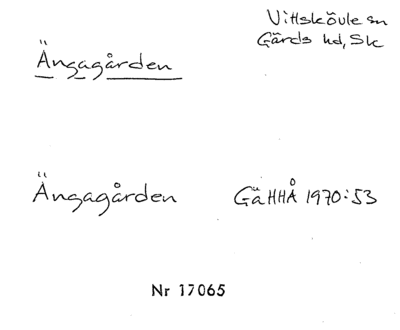 Vittskövle sn
Gärds hd, Sk
Ängagården
Ängagården GäHHÅ 1970:53
Nr 17065